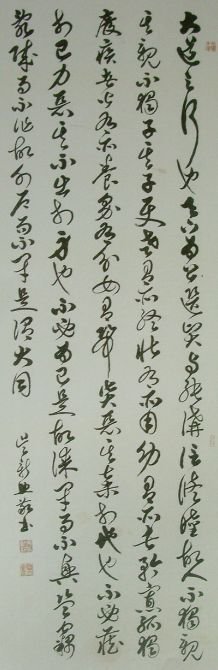 大道之行也天下為公選賢與能講信修睦故人不獨親
其親不獨子其子使老有所終壯有所用幼有所長矜寡孤獨
廢疾者皆有所養男有分女有歸貨惡其棄於地也不必藏
於己力惡其不出於身也不必為己是故謀閉而不興盜竊
亂賊而不作故外户而不閉是謂大同